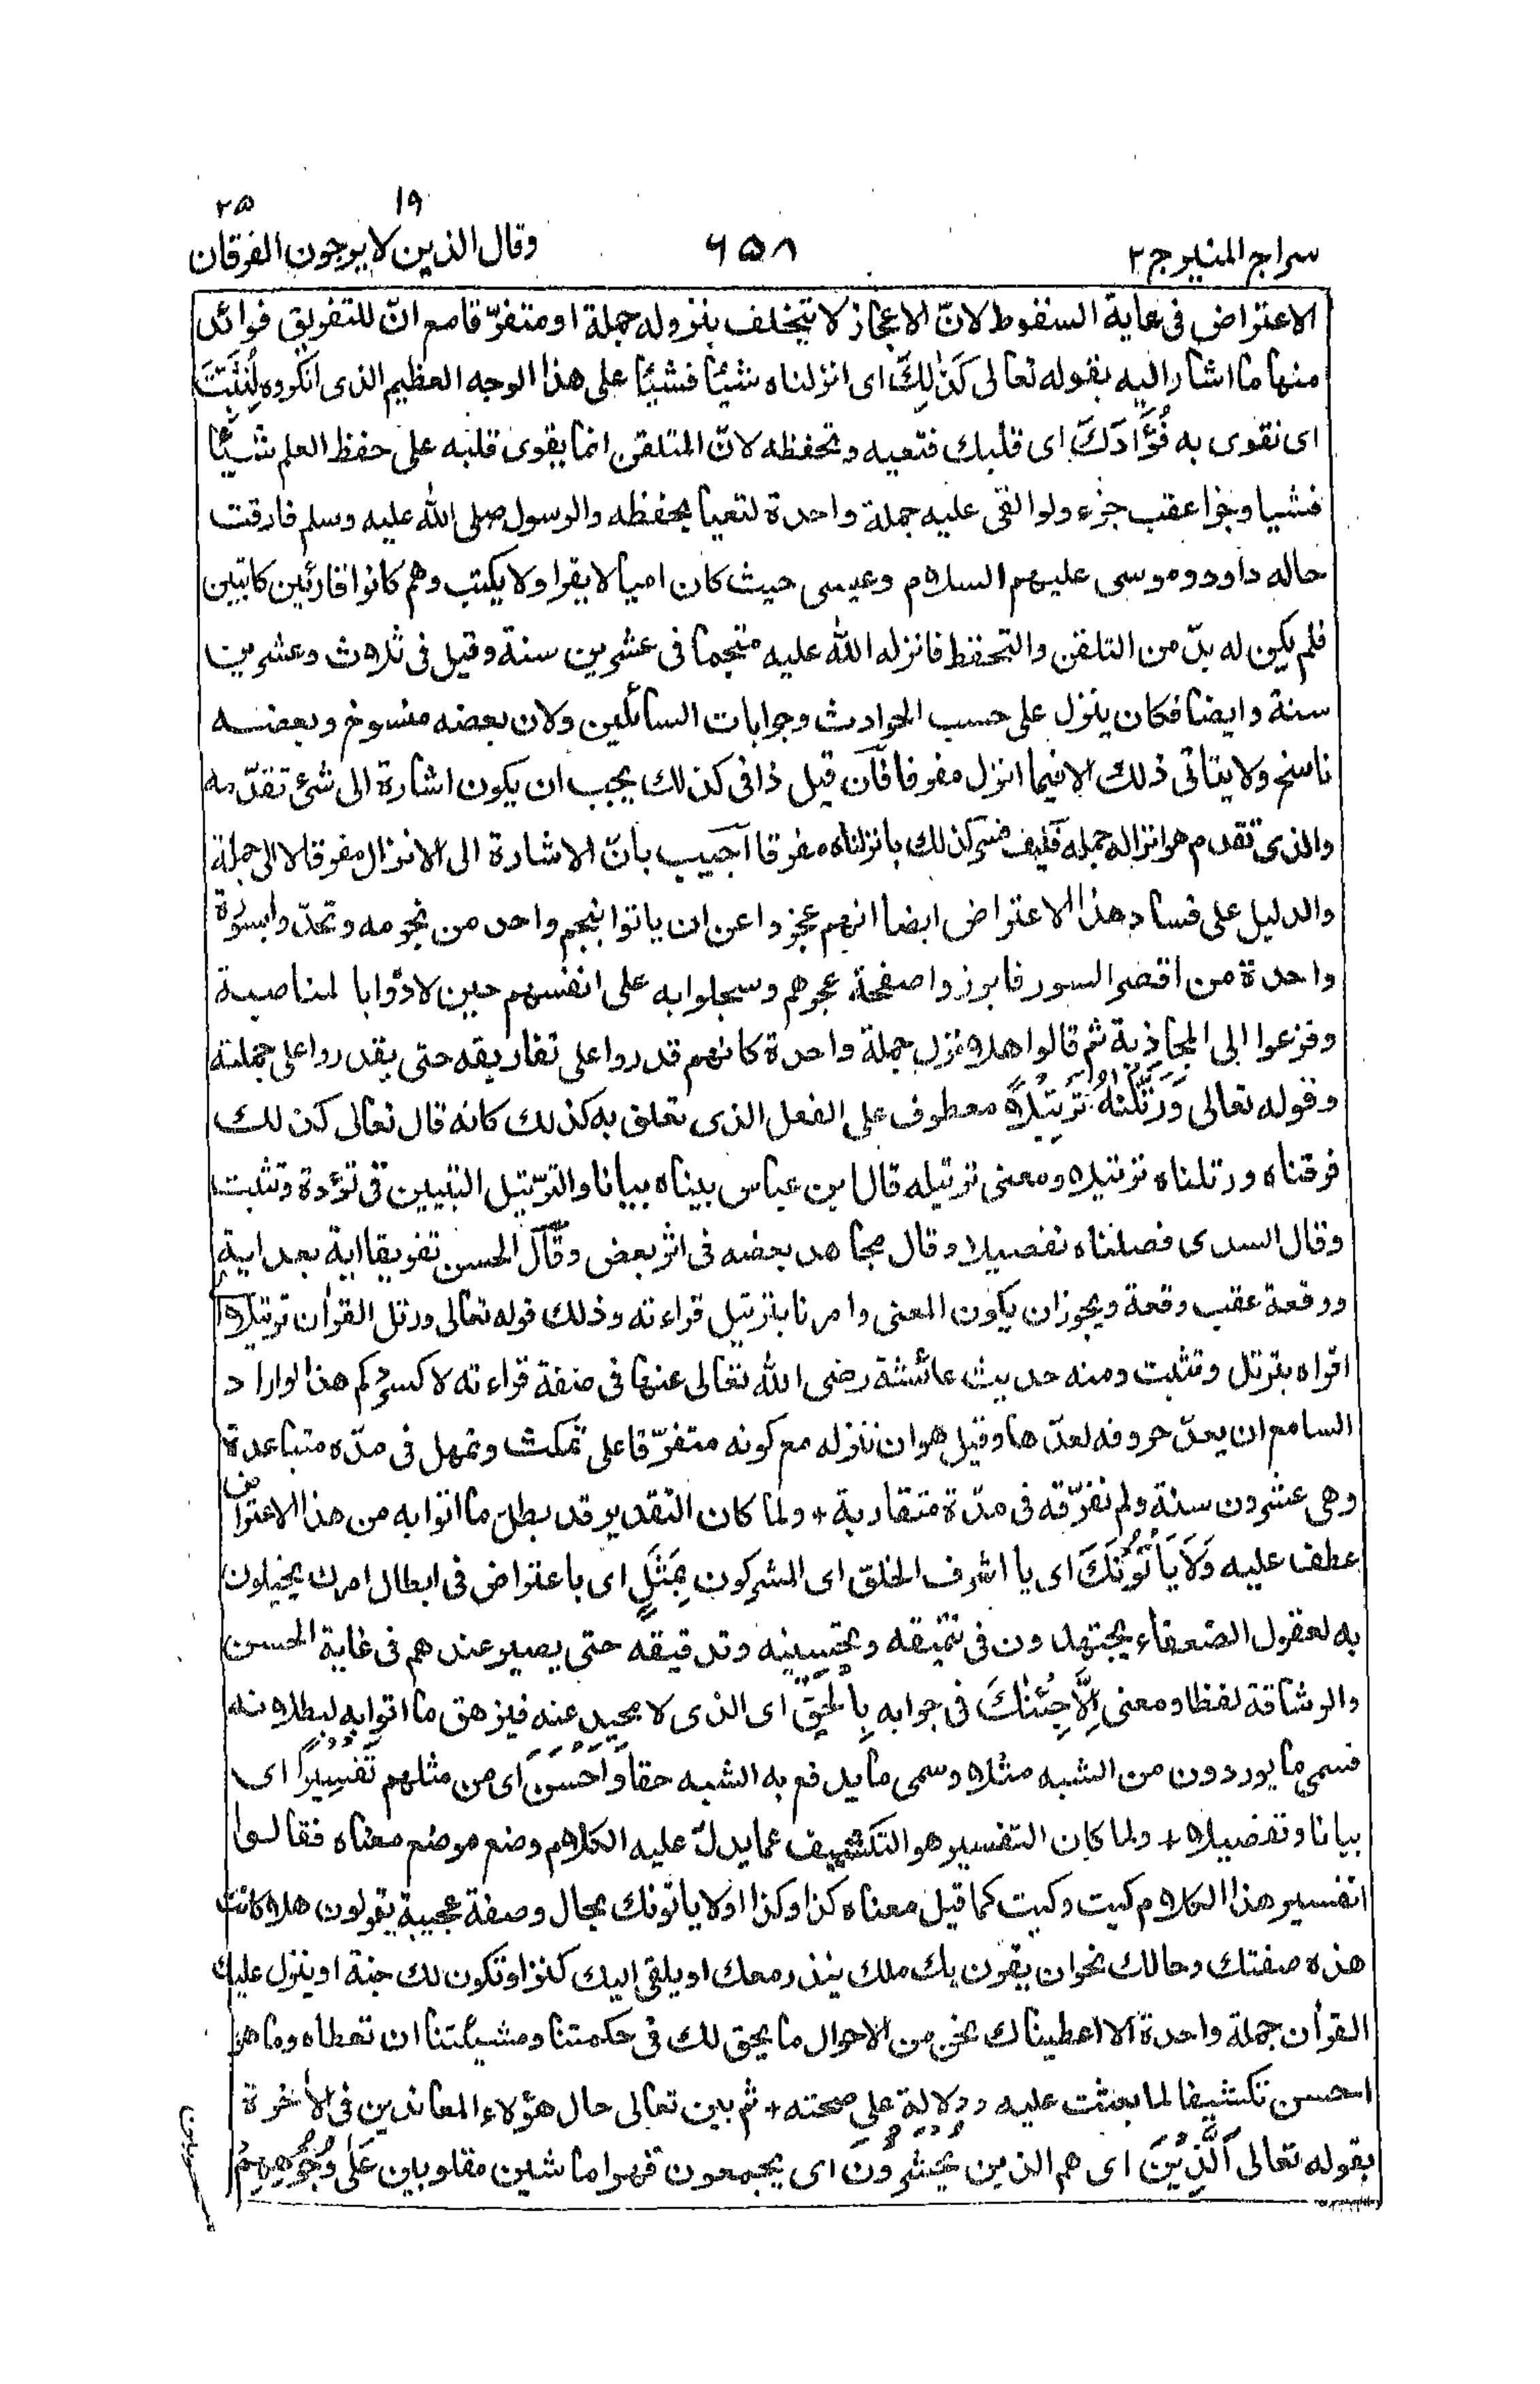 ١٩ ٢٥
سراج المنير ج ٢ ٦٥٨ وقال الذين لا يرجون الفرقان
الاعتراض فى غاية السقوط لانّ الاعجاز لا يتخلف بنزوله جملة او متفرّقا مع انّ للتفريق فوائد
منها ما اشار اليه بقوله تعالى كَذٰلِكَ اى انزلناه شيئًا فشيئًا على هذا الوجه العظيم الذى انكروه لِنُثَبِّتَ
اى نقوى به فُؤَادَكَ اى قلبك فتعيه وتحفظه لانّ المتلقن انما يقوى قلبه على حفظ العلم شيئًا
فشيا وجزا عقب جزء ولو القى عليه جملة واحدة لتعيا بحفظه والرسول صلى الله عليه وسلم فارقت
حاله داود وموسى عليهم السلام وعيسى حيث كان اميا لا يقرا ولا يكتب وهم كانوا قارئين كاتبين
فلم يكن له بدّ من التلقن والتحفظ فانزله الله عليه منجما فى عشرين سنة وقيل فى ثلاث وعشرين
سنة وايضا فكان ينزل على حسب الحوادث وجوابات السائلين ولان بعضه منسوخ وبعضه
ناسخ ولا يتاتى ذلك الا فيما انزل مفرقا فآن قيل ذا فى كذلك يجب ان يكون اشارة الى شئ تقدّمه
والذى تقدم هو انزاله جمله فكيف فسر كذلك بانزلناه مفرقا آجيب بانّ الاشارة الى الانزال مفرقا لا الى جملة
والدليل على فساد هذا الاعتراض ايضا انهم عجزوا عن ان ياتوا بنجم واحد من نجومه وتحدّوا بسورة
واحدة من اقصر السور فابرزوا صفحة عجزهم وسجلوا به على انفسهم حين لاذوا بالمناصبة
وفزعوا الى المجاذبة ثم قالوا هلا نزل جملة واحدة كانهم قدروا على تفاريقه حتى يقدروا على جملته
وقوله تعالى وَرَتَّلْنٰهُ تَرْتِيْلًا معطوف على الفعل الذى تعلق به كذلك كانه قال تعالى كذلك
فرقناه ورتلناه ترتيلا ومعنى ترتيله قال ابن عباس بيناه بيانا والترّتيل التبيين فى تؤدة وتثبت
وقال السدى فصلناه تفصيلا وقال مجاهد بعضه فى اثر بعض وقآل الحسن تفريقا اية بعد اية
ووقعة عقب وقعة ويجوز ان يكون المعنى وامرنا بترتيل قراءته وذلك قوله تعالى ورتل القرأن ترتيلا اى
اقراه بترتل وتثبت ومنه حديث عائشة رضى الله تعالى عنها فى صفة قراءته لا كسردكم هذا لو اراد
السامع ان يعدّ حروفه لعدّها وقيل هو ان ننزله مع كونه متفرّقا على تمكث وتمهل فى مدّه متباعدة
وهى عشرون سنة ولم نفرّقه فى مدّة متقاربة + ولما كان التقدير قد بطل ما اتوا به من هذا الاعتراض
عطف عليه وَلَا يَأْتُوْنَكَ اى يا اشرف الخلق اى المشركون بِمَثَلٍ اى باعتراض فى ابطال امرك يخيلون
به لعقول الضعفاء يجتهدون فى تنميقه وتحسينه وتدقيقه حتى يصير عندهم فى غاية الحسن
والرشاقة لفظا ومعنى اِلَّا جِئْنٰكَ فى جوابه بِالْحَقِّ اى الذى لا محيد عنه فيزهق ما اتوا به لبطلانه
فسمى ما يوردون من الشبه مثلا وسمى ما يدفع به الشبه حقا وَاَحْسَنَ اى من مثلهم تَفْسِيْرًا اى
بيانا وتفصيلا + ولما كان التفسير هو التكشيف عما يدلّ عليه الكلام وضع موضع معناه فقالوا
اتفسير هذا الكلام كيت وكيت كما قيل معناه كذا وكذا اولا ياتونك بحال وصفة عجيبة يقولون هلا كانت
هذه صفتك وحالك نحو ان يقرن بك ملك ينذر معك او يلقى اليك كنز او تكون لك جنة او ينزل عليك
القرأن جملة واحدة الا اعطيناك نحن من الاحوال ما يحق لك فى حكمتنا ومشيئتنا ان تعطاه وما هو
احسن تكشيفا لما بعثت عليه ودلالة على صحته + ثم بين تعالى حال هؤلاء المعاندين فى الأخرة
بقوله تعالى اَلَّذِيْنَ اى هم الذين يُحْشَرُوْنَ اى يجمعون قهرا ماشين مقلوبين عَلٰى وُجُوْهِهِمْ